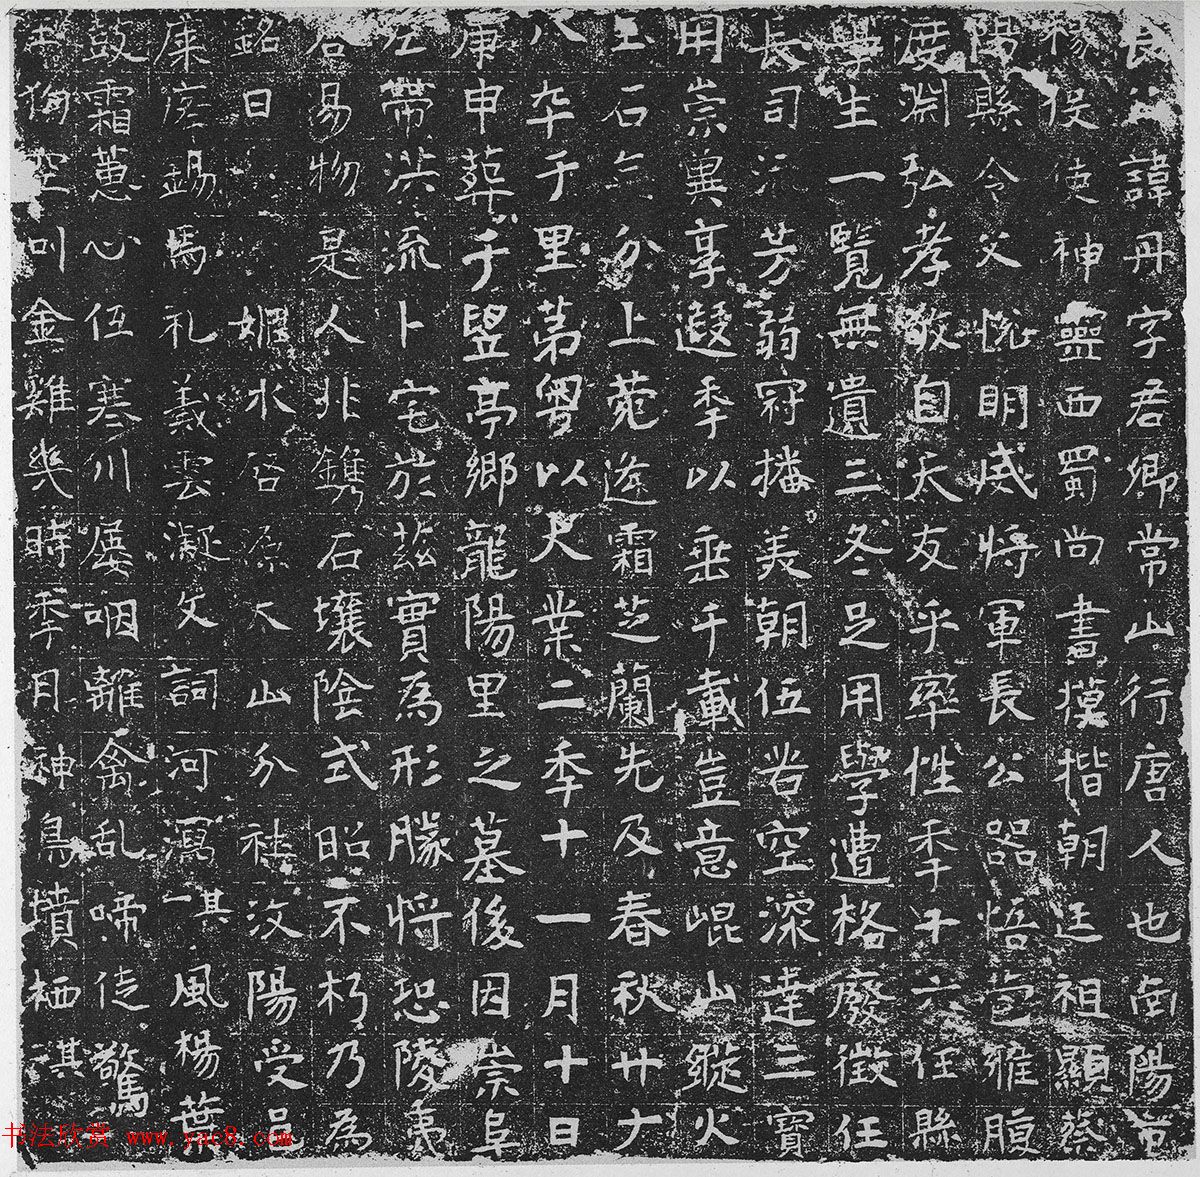 諱丹字君卿常山行唐人也
役使神靈西蜀尚書模楷朝廷祖顯蔡
陽縣令父悅明威將軍長公器悟苞雅腹
度淵弘孝敬自天友乎率性年十六任縣
學生一覽無遺三冬足用學遭格廢徵任
長司流芳弱冠播美朝伍咎空深達三寶
用崇冀享遐年以垂千載豈意崐山縱火
玉石分上菀逢霜芝蘭先及春秋廿有
八卒于里第粤以大業二年十一月十日
庚申葬于豎亭鄉龍陽里之墓後因崇阜
左帶洪流卜宅於茲實為形勝將恐陵夷
谷易物是人非鐫石壤陰式昭不朽乃為
銘曰 媯水啓源大山分祉汶陽受邑
錫馬礼義雲凝文詞河瀉其一風楊葉
霜蕙心伍寒川屢咽離禽乱啼徒驚
狗空叫金雞幾時年月神鳥墳栖其
书法欣赏 www.yac8.com